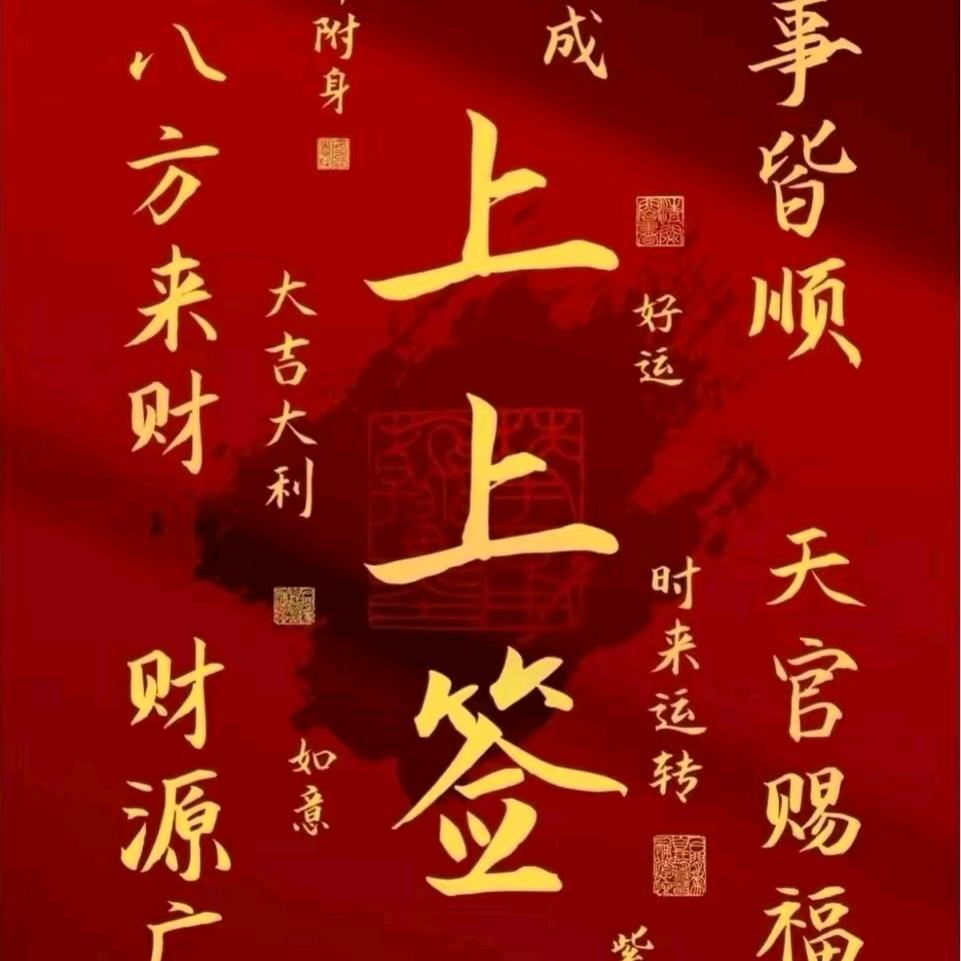 事皆顺
天官赐福
好运
时来运转
紫
成
上上签
附身
大吉大利
如意
八方来财
财源广